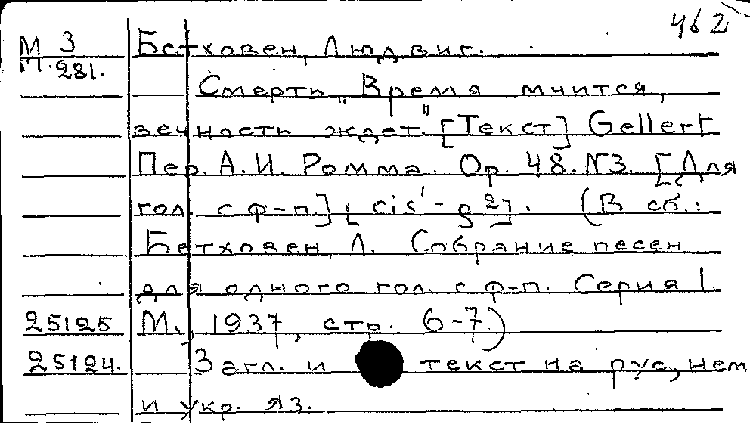 462
М 3 Бетховен, Людвиг.
П. 281.
Смерть „Время мчится,
вечность ждет" [Текст] Gellert
Пер. А. И. Ромма. Ор. 48. N3. [Для
гол. с ф-п.] [cis¹ - g²]. (В сб.:
Бетховен, Л. Собрание песен
для одного гол. с ф-п. Серия I
25125 М., 1937, стр. 6-7.)
25124. Загл. и текст на рус, нем
и укр. яз.